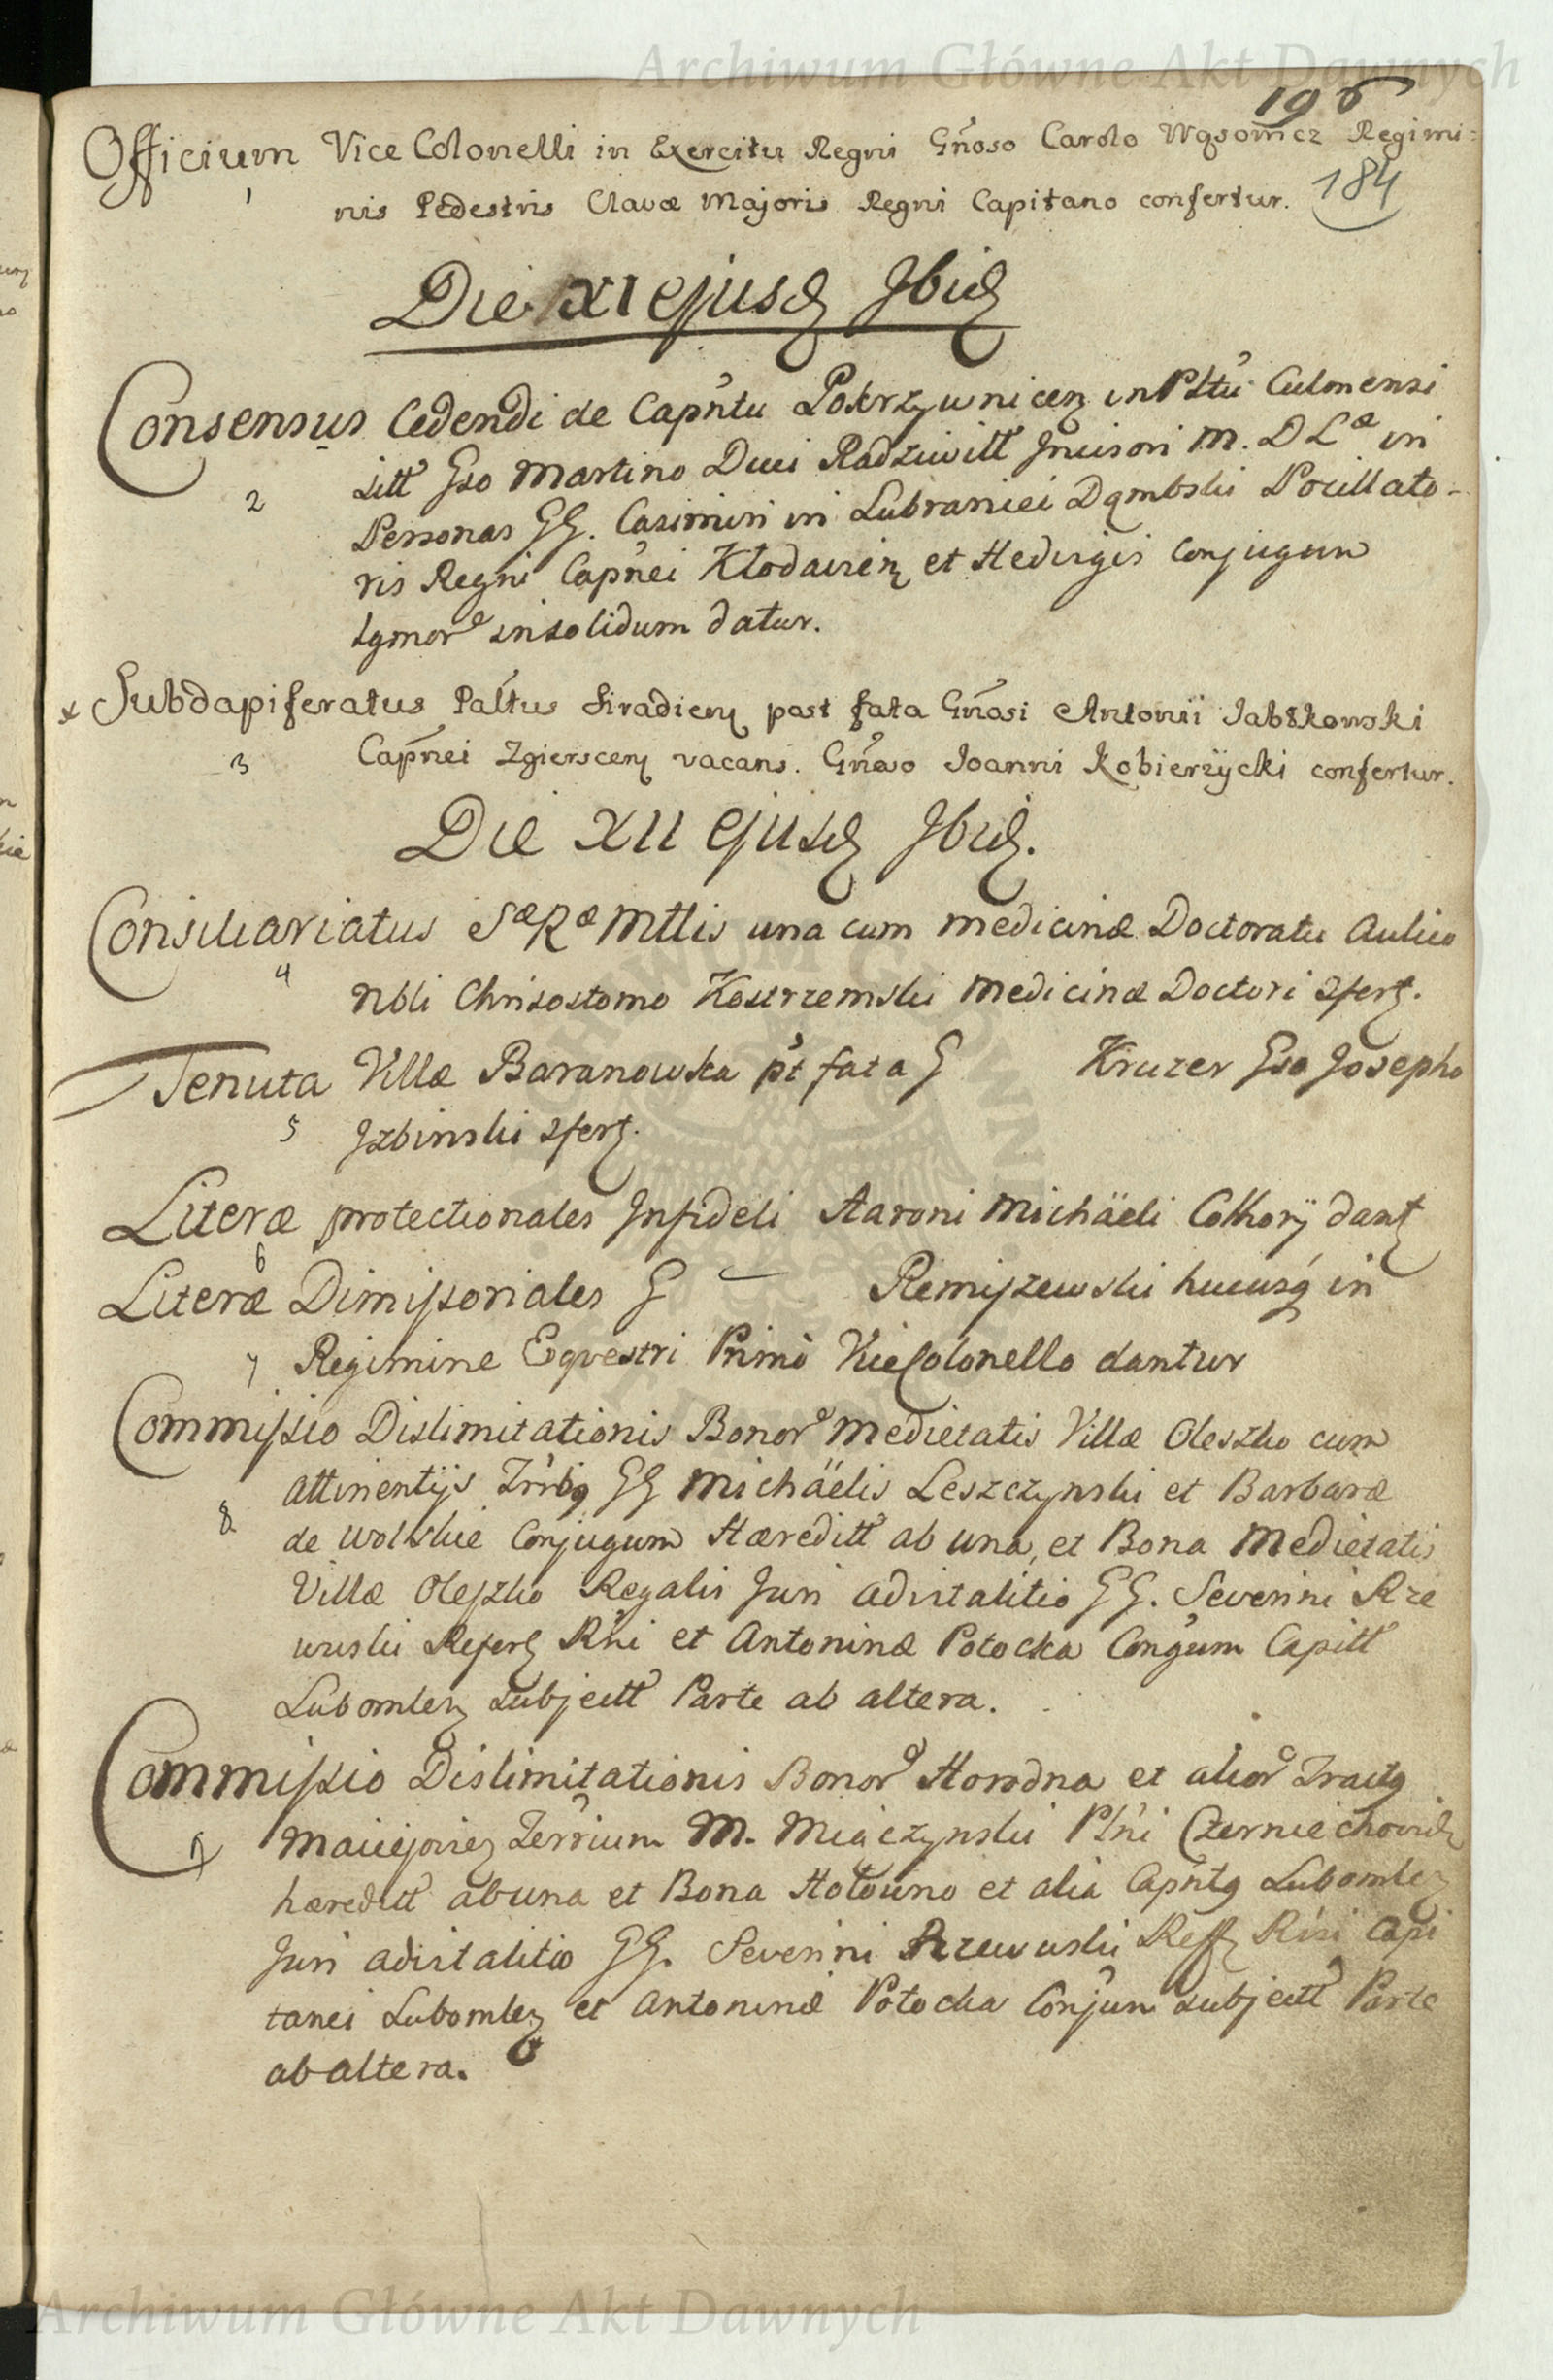 Archiwum Główne Akt Dawnych
196
Officium Vice Colonelli in Exercitu Regni Gñoso Carolo Wąsowicz Regimi=
1
nis Pedestris Clavæ Majoris Regni Capitano confertur. 184
Die XI ejusd Ibid
Consensus Cedendi de Capñtu Pokrzywnicen in Pltu Culmensi
2 sitt Gso Martino Duci Radziwitt Incisori M. D Læ in
Personas GG. Casimiri in Lubraniec Dąmbski Pocillato-
ris Regni Capñei Kłodavien et Hedvigis Conjugum
Sgmor insolidum datur.
Subdapiferatus Paltus Siradien post fata Gñosi Antonii Jabłkowski
3 Capñei Zgierscen vacans. Gñoso Joanni Kobierzÿcki confertur.
Die XII ejusd Ibid.
Consiliariatus Sæ Ræ Mttis una cum Medicinæ Doctoratu Aulico
4
Nbli Chrisostomo Kostrzemski Medicinæ Doctori 2fert.
Tenuta Villæ Baranowska pt fata G Kruzer Gso Josepho
5 Izbinski 2fert.
Literæ protectionales Infideli Aaroni Michäeli Cothorÿ dant
6
Literæ Dimissoriales G Remiszewski hucusq in
7 Regimine Eqvestri Primo ViceColonello dantur
Commissio Dislimitationis Bonor Medietatis Villæ Oleszko cum
attinentijs GG Michäelis Leszczynski et Barbaræ
8
de Wolskie Conjugum Hæreditt ab una, et Bona Medietatis
Villæ Oleszko Regalis Juri advitalitio GG. Severini Rze
wuski Refert Rñi et Antoninæ Potocka Conjum Capitt
Lubomlen subjectt Parte ab altera.
Commissio Dislimitationis Bonor Horodna et alior Tractq
9 Maciejovien Terrium M. Miączynski Plñi Czerniechovien
hæreditt ab una et Bona Hołowno et alia Capñtq Lubomlen
Juri advitalitio GG. Severini Rzewuski Reff Rñi Capi
tanei Lubomlen et Antoninæ Potocka Conjum subjectt Parte
ab altera.
Archiwum Główne Akt Dawnych